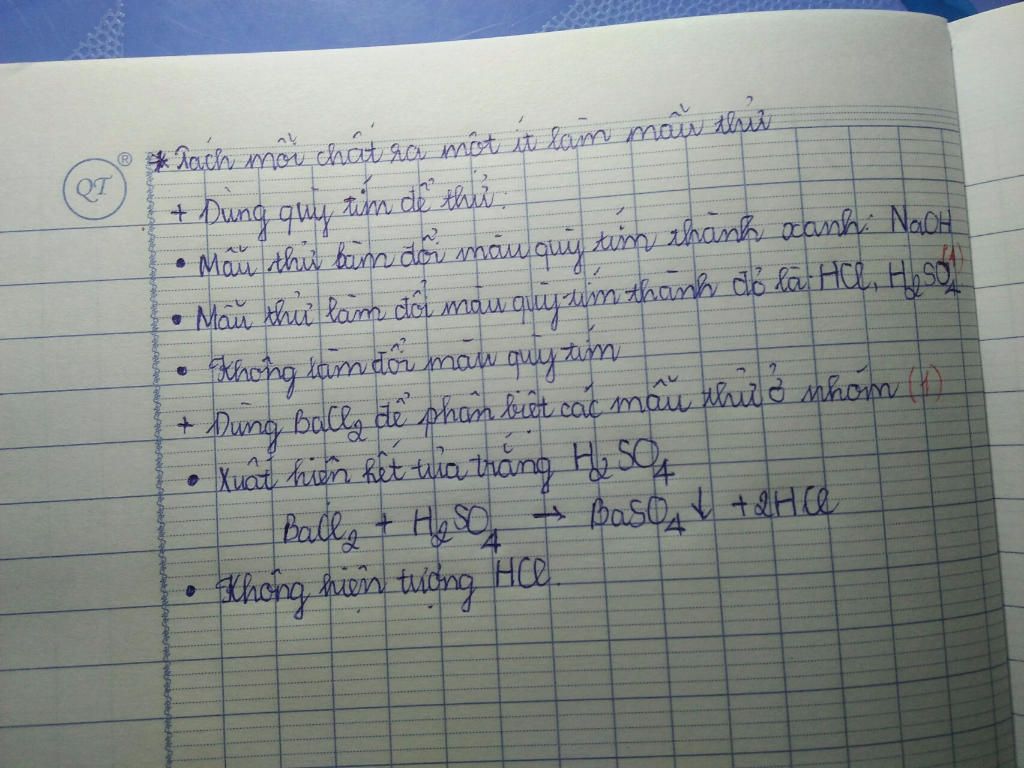 QT ®
* Tách mỗi chất ra một ít làm mẫu thử
+ Dùng quỳ tím để thử:
• Mẫu thử làm đổi màu quỳ tím thành xanh: NaOH
• Mẫu thử làm đổi màu quỳ tím thành đỏ là: HCl, H₂SO₄ (1)
• Không làm đổi màu quỳ tím
+ Dùng BaCl₂ để phân biệt các mẫu thử ở nhóm (1)
• Xuất hiện kết tủa trắng H₂SO₄
BaCl₂ + H₂SO₄ → BaSO₄↓ + 2HCl
• Không hiện tượng HCl.